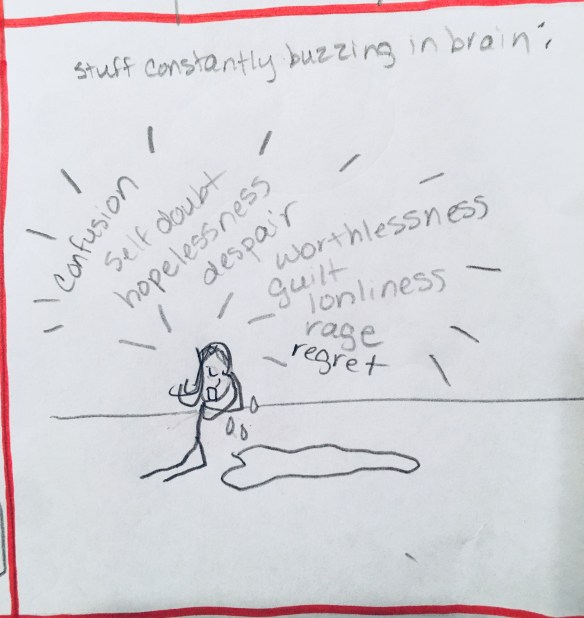 stuff constantly buzzing in brain:
confusion
self doubt
hopelessness
despair
worthlessness
guilt
lonliness
rage
regret